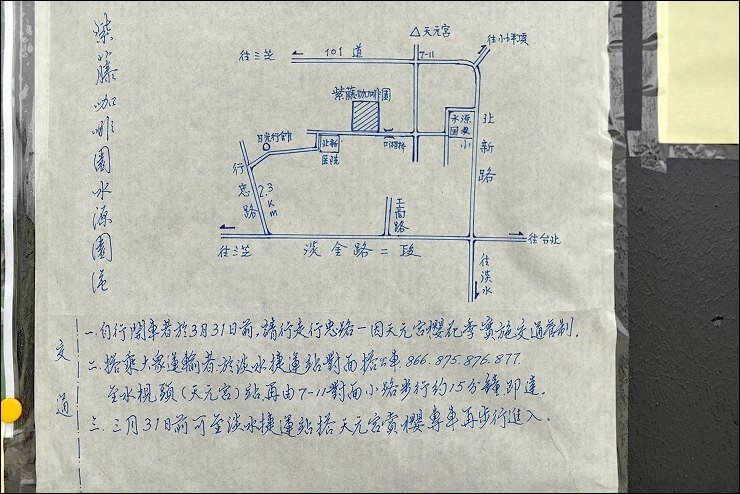 紫藤咖啡園水源園區
△天元宮
往小坪頂
往三芝
101道
7-11
紫藤咖啡園
水源
國小
北新路
日光行館
北新
醫院
行忠路
2.3
Km
工商路
往三芝
淡金路二段
往台北
往淡水
交通
一.自行開車者於3月31日前,請行走行忠路—因天元宮櫻花季實施交通管制.
二.搭乘大眾運輸者於淡水捷運站對面搭公車.866.875.876.877.
至水視頭(天元宮)站.再由7-11對面小路步行約15分鐘即達.
三.三月31日前可至淡水捷運站搭天元宮賞櫻專車再步行進入.